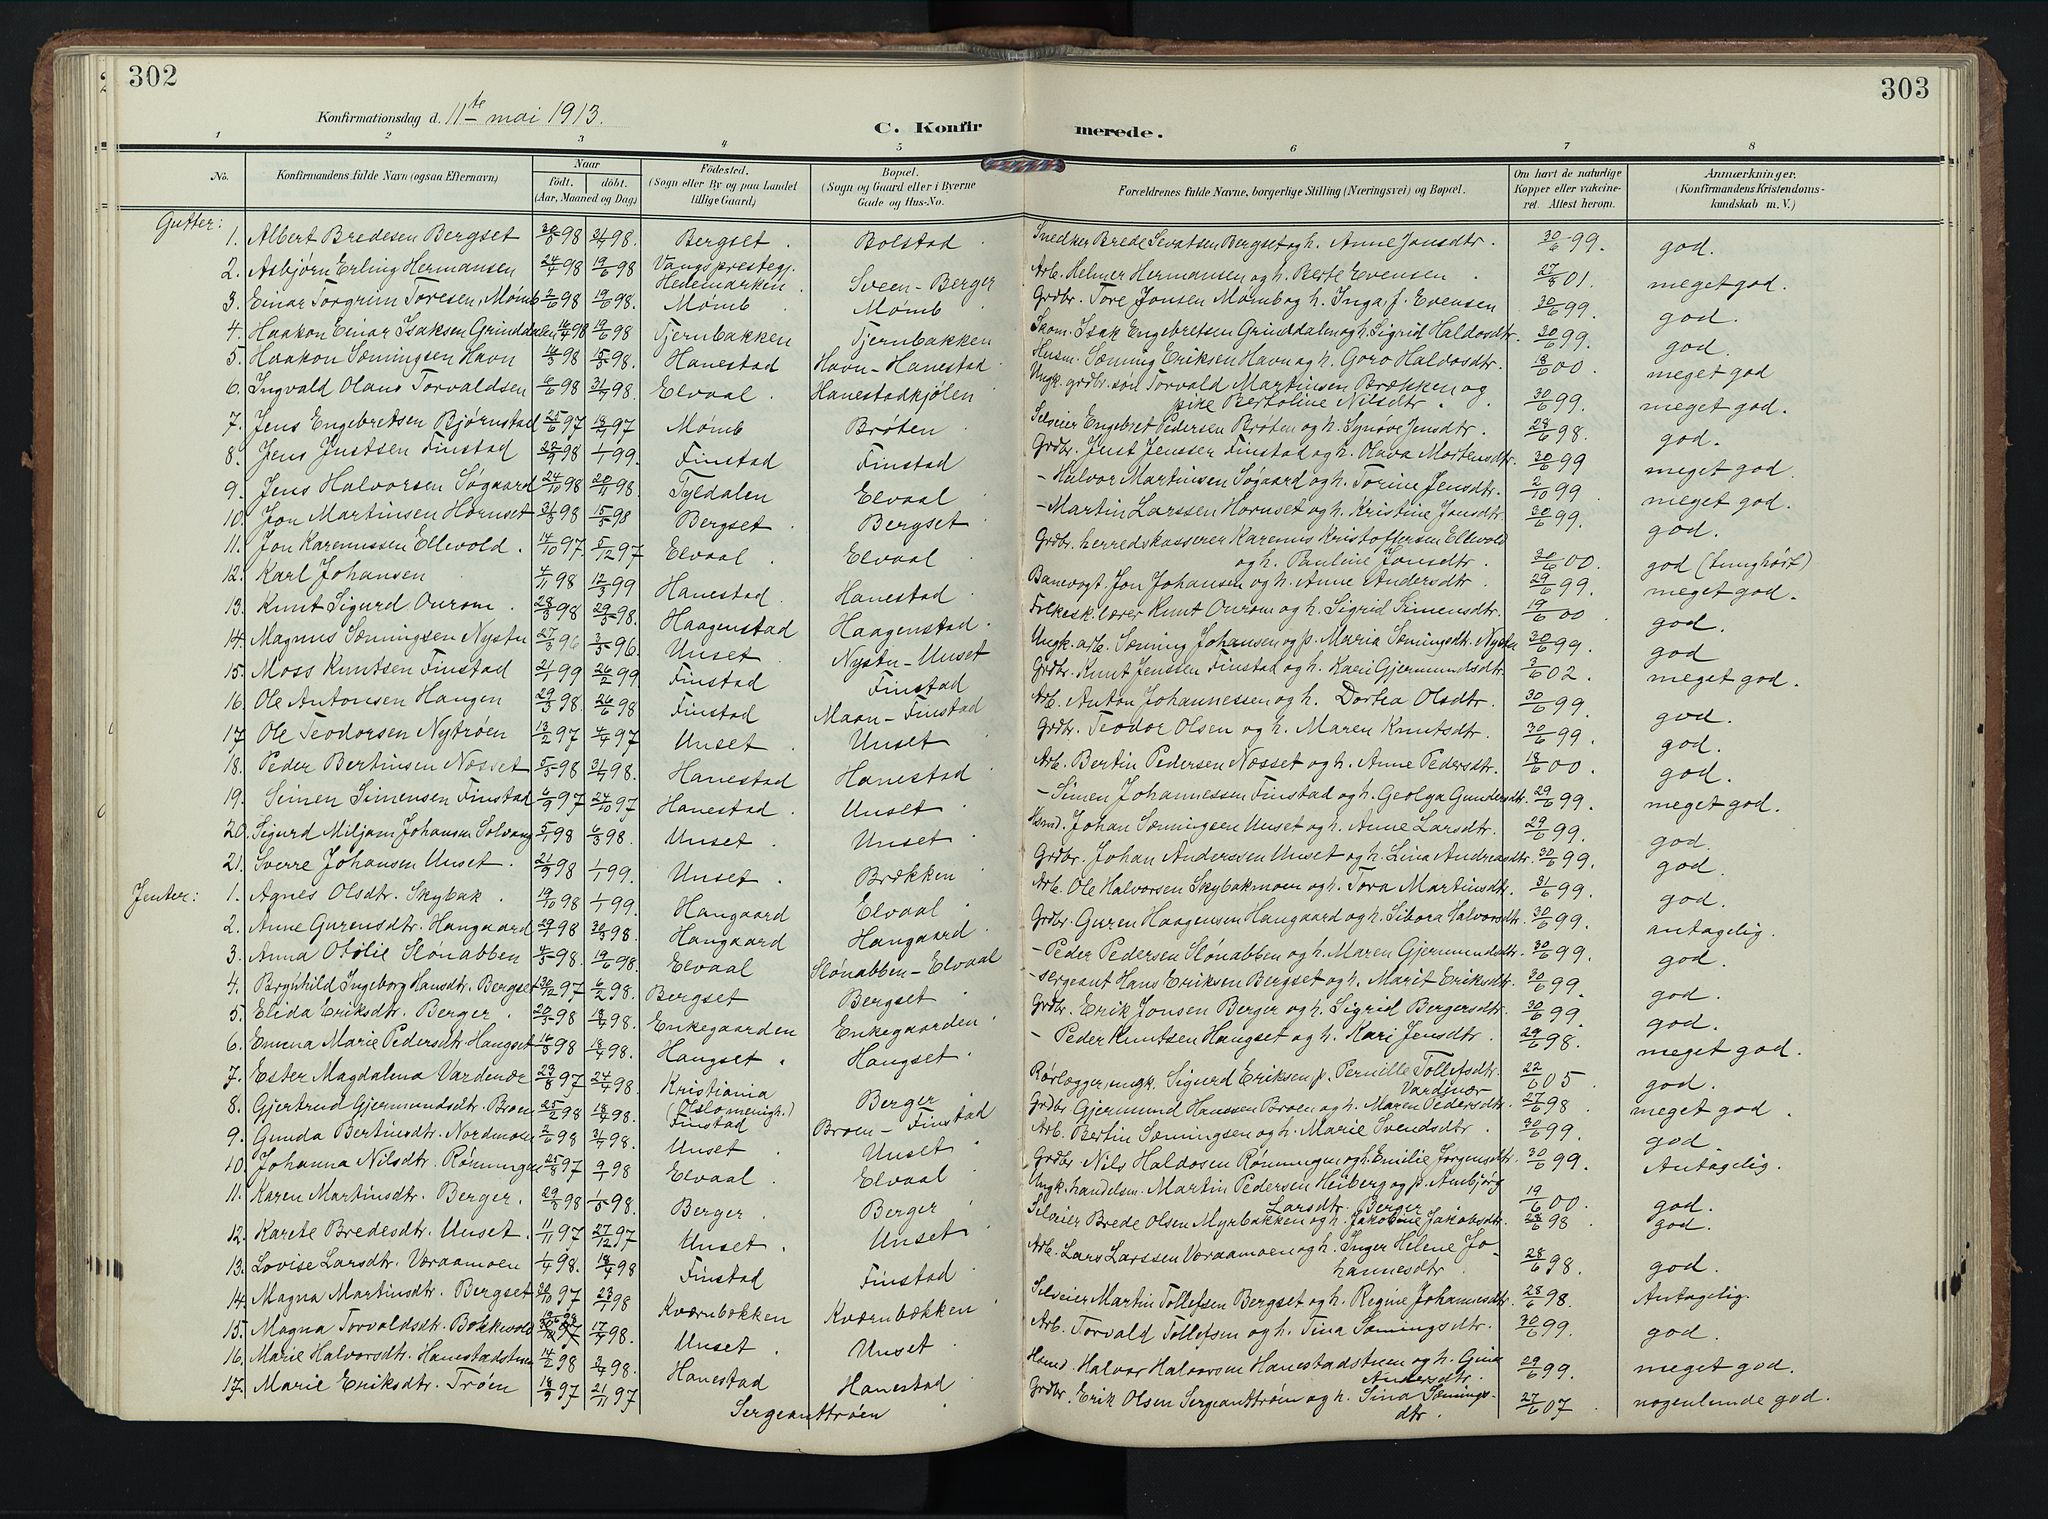 302
303
Konfirmationsdag d. 11te mai 1913.
C. Konfirmerede.
1 2 3 4 5 6 7 8
No. Konfirmandens fulde Navn (ogsaa Efternavn). Naar født. døbt. (Aar, Maaned og Dag) Fødested. (Sogn eller By og paa Landet tillige Gaard) Bopæl. (Sogn og Gaard eller i Byerne Gade og Hus-No. Forældrenes fulde Navne, borgerlige Stilling (Næringsvei) og Bopæl. Om havt de naturlige Kopper eller vakcineret. Attest herom. Anmærkninger. (Konfirmandens Kristendomskundskab m. V.)
Gutter:
1. Albert Bredesen Bergset 98 98. Bergset. Bolstad. Snedker Brede Sevatsen Bergset og h. Anne Jonsdtr. 30/6 99. god.
2. Asbjørn Erling Hermansen 24/4 98 19/6 98 Vangs prestegj. Hedemarken. Sveen-Berger Arb. Helmer Hermansen og h. Berte Evensen. 01. meget god.
3. Einar Torgrim Toresen Mømb 98 19/6 98. Mømb Mømb Grdbr. Tore Jonsen Mømb og h. Inga f. Evensen 30/6 99. god.
4. Haakon Einar Isaksen Grinddalen 16/4 98 19/6 98 Tjernbakken Tjernbakken Skom. Isak Engebretsen Grinddalen og h. Sigrid Haldosdtr. 30/6 99. god.
5. Haakon Sæmingsen Havn 98 15/5 98. Hanestad Havn-Hanestad Husm. Sæming Eriksen Havn og h. Goro Haldosdtr. 18/6 00. meget god
6. Ingvald Olaus Torvaldsen 6/6 98 31/7 98. Elvaal. Hanestadkjølen Ungk. grdbr. søn Torvald Martinsen Brækken og pike Bertoline Nilsdtr. 30/6 99. meget god.
7. Jens Engebretsen Bjørnstad 25/6 97 97 Mømb Brøten Selveier Engebret Pedersen Brøten og h. Synøve Jensdtr. 28/6 98. god.
8. Jens Justsen Finstad 98 1/1 99. Finstad Finstad Grdbr. Just Jenssen Finstad og h. Olava Mortensdtr. 30/6 99 meget god.
9. Jens Halvorsen Søgaard 24/10 98 20/11 98. Tyldalen Elvaal - Halvor Martinsen Søgaard og h. Torine Jensdtr. 2/10 99. meget god.
10. Jon Martinsen Hornset 31/3 98 15/5 98 Bergset. Bergset. - Martin Larssen Hornset og h. Kristine Jensdtr. 30/6 99. god.
11. Jon Karenussen Ellevold. 14/10 97. 5/12 97 Elvaal. Elvaal Grdbr. herredskasserer Karenus Kristoffersen Ellevold og h. Pauline Jonsdtr. 30/6 00. god (tunghørt)
12. Karl Johansen 4/11 98 12/3 99 Hanestad. Hanestad Banevogt. Jon Johansen og h. Anne Andersdtr. 29/6 99. meget god.
13. Knut Sigurd Ourom. 28/3 98 29/5 98. Haagenstad Haagenstad. Folkesk. lærer Knut Ourom og h. Sigrid Simensdtr. 19/6 00 god.
14. Magnus Sæmingsen Nystu 27/3 96 3/5 96. Unset. Nystu-Unset Ungk. arb. Sæming Johansen og p. Maria Sæmingsdtr. Nystu 30/6 99. god
15. Moss Knutsen Finstad 21/1 99 26/2 99 Finstad Finstad Grdbr. Knut Jenssen Finstad og h. Kari Gjermundsdtr. 3/6 02. meget god.
16. Ole Antonsen Haugen 29/3 98. 26/6 98 Finstad Moan-Finstad Arb. Anton Johannessen og h. Dortea Olsdtr. 30/6 99. god.
17. Ole Teodorsen Nytrøen 13/2 97 4/4 97 Unset. Unset Grdbr. Teodor Olsen og h. Maren Knutsdtr. 30/6 99. god.
18. Peder Bertinsen Næsset 5/5 98 31/7 98. Hanestad Hanestad Arb. Bertin Pedersen Næsset og h. Anne Pedersdtr. 18/6 00. god.
19. Simen Simensen Finstad 6/9 97 24/10 97 Hanestad. Unset - Simen Johannessen Finstad og h. Geolga Gundersdtr. 29/6 99. meget god.
20. Sigurd Miljam Johansen Solvang 5/1 98 6/3 98. Unset. Unset Husmd. Johan Sæmingsen Unset og h. Anne Larsdtr. 29/6 99. god.
21. Sverre Johansen Unset. 21/9 98 1/1 99. Unset. Brækken Grdbr. Johan Anderssen Unset og h. Lina Andreasdtr. 30/6 99. god.
Jenter:
1. Agnes Olsdtr. Skybak. 19/10 98 1/1 99. Haugaard Elvaal Arb. Ole Halvorsen Skybakmoen og h. Tora Martinsdtr. 31/6 99. god.
2. Anne Gurensdtr. Haugaard 98 98. Haugaard Haugaard. Grdbr. Guren Haagensen Haugaard og h. Sibora Halvorsdtr. 30/6 99. antagelig.
3. Anna Otilie Slønabben 4/5 98. 19/6 98. Elvaal Slønabben-Elvaal - Peder Pedersen Slønabben og h. Maren Gjermundsdtr. 30/6 99. god.
4. Brynhild Ingeborg Hansdtr. Bergset 30/12 97 6/2 98. Bergset Bergset. - sergeant Hans Eriksen Bergset og h. Marit Eriksdtr. 30/6 99. god.
5. Elida Eriksdtr. Berger. 98 98. Enkegaarden Enkegaarden Grdbr. Erik Jonsen Berger og h. Sigrid Bergersdtr. 30/6 99. god.
6. Emma Marie Pedersdtr. Haugset 16/3 98 18/4 98. Haugset. Haugset. - Peder Knutsen Haugset og h. Kari Jensdtr. 29/6 98. meget god.
7. Ester Magdalena Vardenær 29/8 97 24/4 98. Kristiania (Oslo menigh.) Berger. Rørlægger, ungk. Sigurd Eriksen p. Pernille Tollefsdtr. Vardenær 22/6 05 god.
8. Gjertrud Gjermundsdtr. Broen 25/2 98 18/4 98. Finstad Broen-Finstad Grdbr. Gjermund Hanssen Broen og h. Maren Pedersdtr. 27/6 98 meget god.
9. Gunda Bertinsdtr. Nordmoen 2/6 98 98. Unset. Unset Arb. Bertin Sæmingsen og h. Marie Svendsdtr. 30/6 99. god.
10. Johanna Nilsdtr. Rønningen 97 98 Elvaal. Elvaal Grdbr. Nils Haldosen Rønningen og h. Emilie Jørgensdtr. 30/6 99. Antagelig.
11. Karen Martinsdtr. Berger. 98 1/5 98. Berger. Berger Ungk. handelsm. Martin Pedersen Heiberg og p. Ambjørg Larsdtr. Berger 19/6 00. god.
12. Karete Bredesdtr. Unset. 11/11 97 27/12 97 Unset. Unset Selveier Brede Olsen Myrbakken og h. Jakobine Jakobsdtr. 28/6 98 god.
13. Lovise Larsdtr. Voraamoen 1/4 98. 18/4 98 Finstad Finstad. Arb. Lars Larssen Voraamoen og h. Inger Helene Johannesdtr. 28/6 98. god.
14. Magna Martinsdtr. Bergset 97 23/1 98 Kværnbækken Kværnbækken Selveier Martin Tollefsen Bergset og h. Regine Johannesdtr. 28/6 98. Antagelig.
15. Magna Torvaldsdtr. Bokkevold 17/4 98. Unset. Unset Arb. Torvald Tollefsen og h. Tina Sæmingsdtr. 30/6 99. god.
16. Marie Halvorsdtr. Hanestadstuen 14/2 98 98. Hanestad Hanestad Husmd. Halvor Halvorsen Hanestadstuen og h. Gina Andersdtr. 29/6 99. meget god.
17. Marie Eriksdtr. Trøen 18/9 97 21/11 97 Sergeanttrøen Grdbr. Erik Olsen Sergeanttrøen og h. Sina Sæmingsdtr. 27/6 07. nogenlunde god.